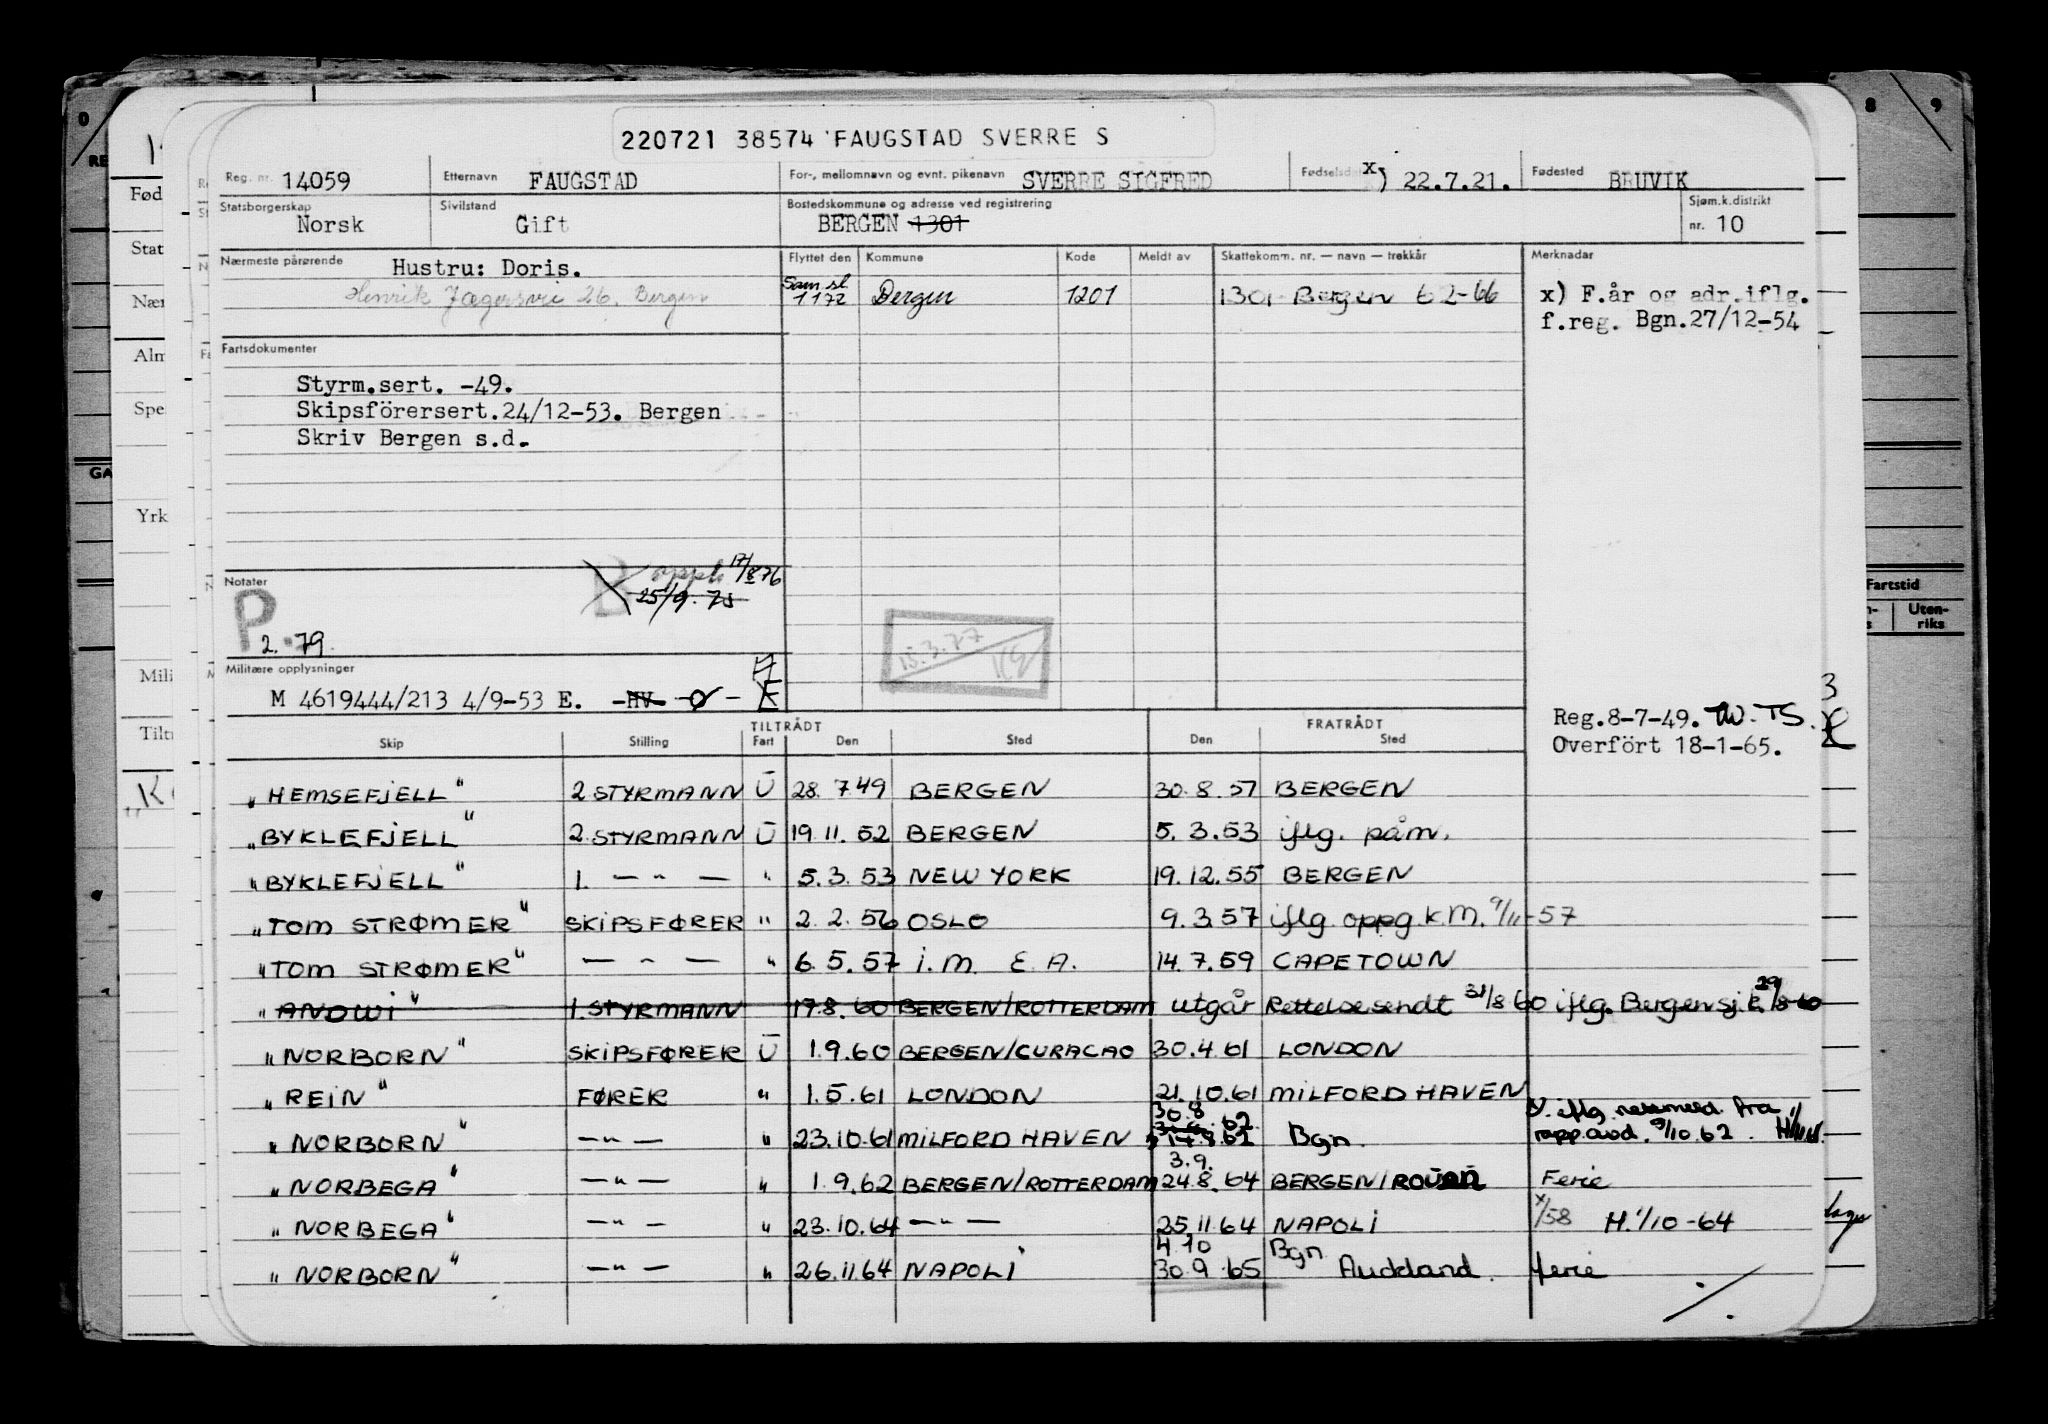 220721 38574 FAUGSTAD SVERRE S
Reg. nr. 14059 Etternavn FAUGSTAD For-, mellomnavn og evnt. pikenavn SVERRE SIGFRED x) 22.7.21. Fødested BRUVIK
Statsborgerskap Norsk Sivilstand Gift Bostedskommune og adresse ved registrering BERGEN 1301 Sjøm.k.distrikt nr. 10
Nærmeste pårørende Hustru: Doris. Flyttet den Kommune Kode Meldt av Skattekomm. nr. — navn — trekkår Merknadar
Henrik Jægersvei 26. Bergen Sam.sl. 1 1 72 Bergen 1201 1301 Bergen 62-66 x) F.år og adr.iflg.
f.reg. Bgn.27/12-54
Fartsdokumenter
Styrm.sert. -49.
Skipsförersert.24/12-53. Bergen
Skriv Bergen s.d.
Notater
P
2.-79
B
17/8 76
25/9.75
15.3.77
Militære opplysninger
M 4619444/213 4/9-53 E. -HV-
Reg.8-7-49. TW.TS.
Overfört 18-1-65.
TILTRÅDT FRATRÅDT
Skip Stilling Fart Den Sted Den Sted
"HEMSEFJELL" 2 STYRMANN U 28.7.49 BERGEN 30.8.57 BERGEN
"BYKLEFJELL" 2. STYRMANN U 19.11.52 BERGEN 5.3.53 iflg. påm.
"BYKLEFJELL" 1. — " — " 5.3.53 NEW YORK 19.12.55 BERGEN
"TOM STRØMER" SKIPSFØRER " 2.2.56 OSLO 9.3.57 iflg. oppg. k.M. 9/11-57
"TOM STRØMER" — " — " 6.5.57 i.m. E.A. 14.7.59 CAPETOWN
"ANDWI" 1. STYRMANN 17.8.60 BERGEN/ROTTERDAM utgår Rettelse sendt 31/8 60 iflg. Bergen sj.k. 29/8-60
"NORBORN" SKIPSFØRER U 1.9.60 BERGEN/CURACAO 30.4.61 LONDON
"REIN" FØRER " 1.5.61 LONDON 21.10.61 MILFORD HAVEN
"NORBORN" — " — " 23.10.61 MILFORD HAVEN 30.8.62 14.8.62 Bgn. iflg. fra
9/10.62.
"NORBEGA" — " — " 1.9.62 BERGEN/ROTTERDAM 3.9. 24.8.64 BERGEN/ROUEN Ferie
"NORBEGA" — " — " 23.10.64 — " — 25.11.64 NAPOLI x/58 H. 1/10-64
"NORBORN" — " — " 26.11.64 NAPOLI 4.10 30.9.65 Bgn Auckland. ferie
0
8 9
RE
Fød
Stat
Nær
Alm
Spe
GA
Yrk
Mili
Tilt
Fartstid
Uten-
riks
3